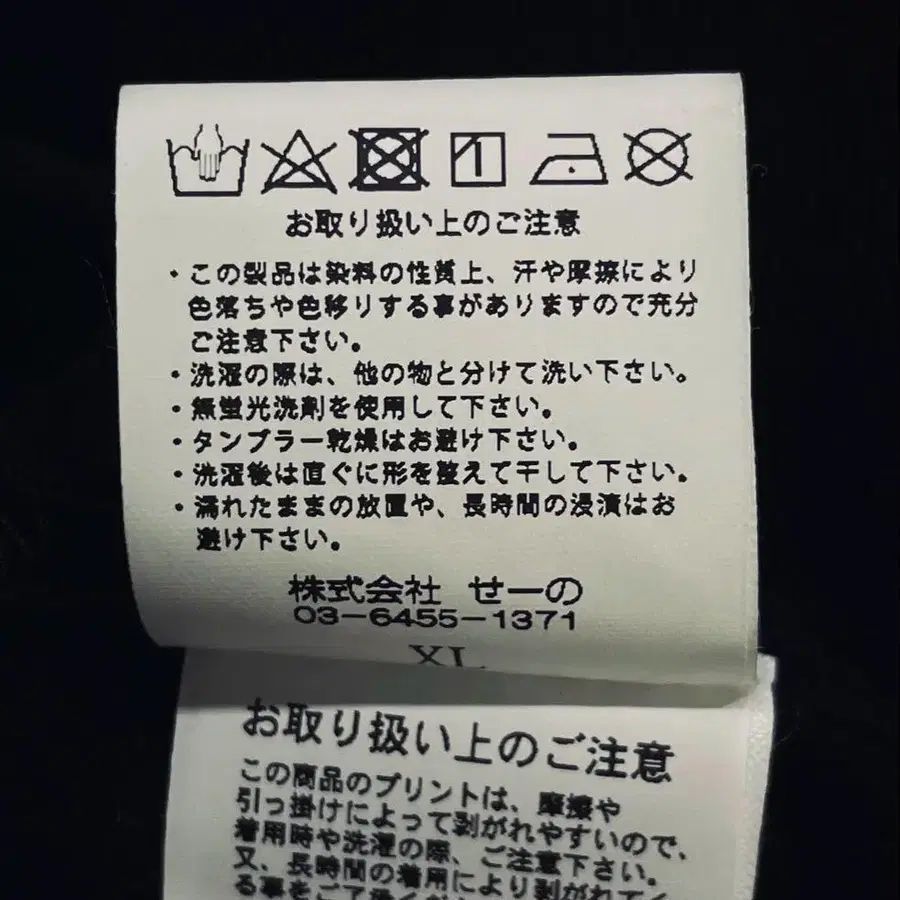 お取り扱い上のご注意
・この製品は染料の性質上、汗や摩擦により
色落ちや色移りする事がありますので充分
ご注意下さい。
・洗濯の際は、他の物と分けて洗い下さい。
・無蛍光洗剤を使用して下さい。
・タンブラー乾燥はお避け下さい。
・洗濯後は直ぐに形を整えて干して下さい。
・濡れたままの放置や、長時間の浸漬はお
避け下さい。
株式会社 せーの
03-6455-1371
XL
お取り扱い上のご注意
この商品のプリントは、摩擦や
引っ掛けによって剥がれやすいので、
着用時や洗濯の際、ご注意下さい。
又、長時間の着用により剥がれてく
る事をご了承く